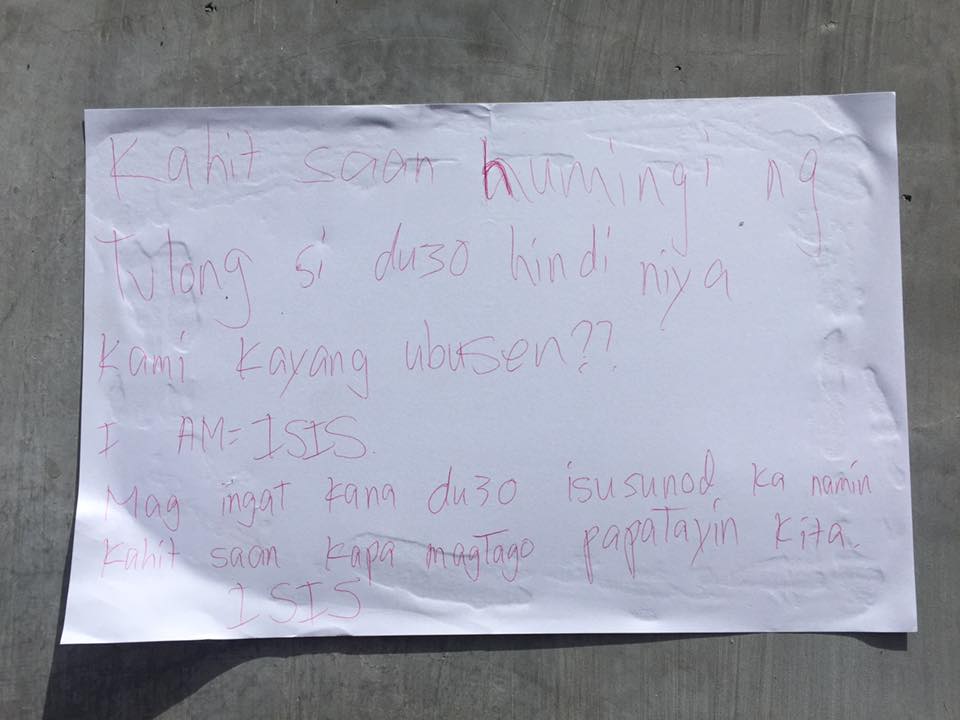 Kahit saan humingi ng
Tulong si du30 hindi niya
Kami kayang ubusen??
I AM=ISIS.
Mag ingat kana du30 isusunod ka namin
Kahit saan kapa magtago papatayin kita.
ISIS